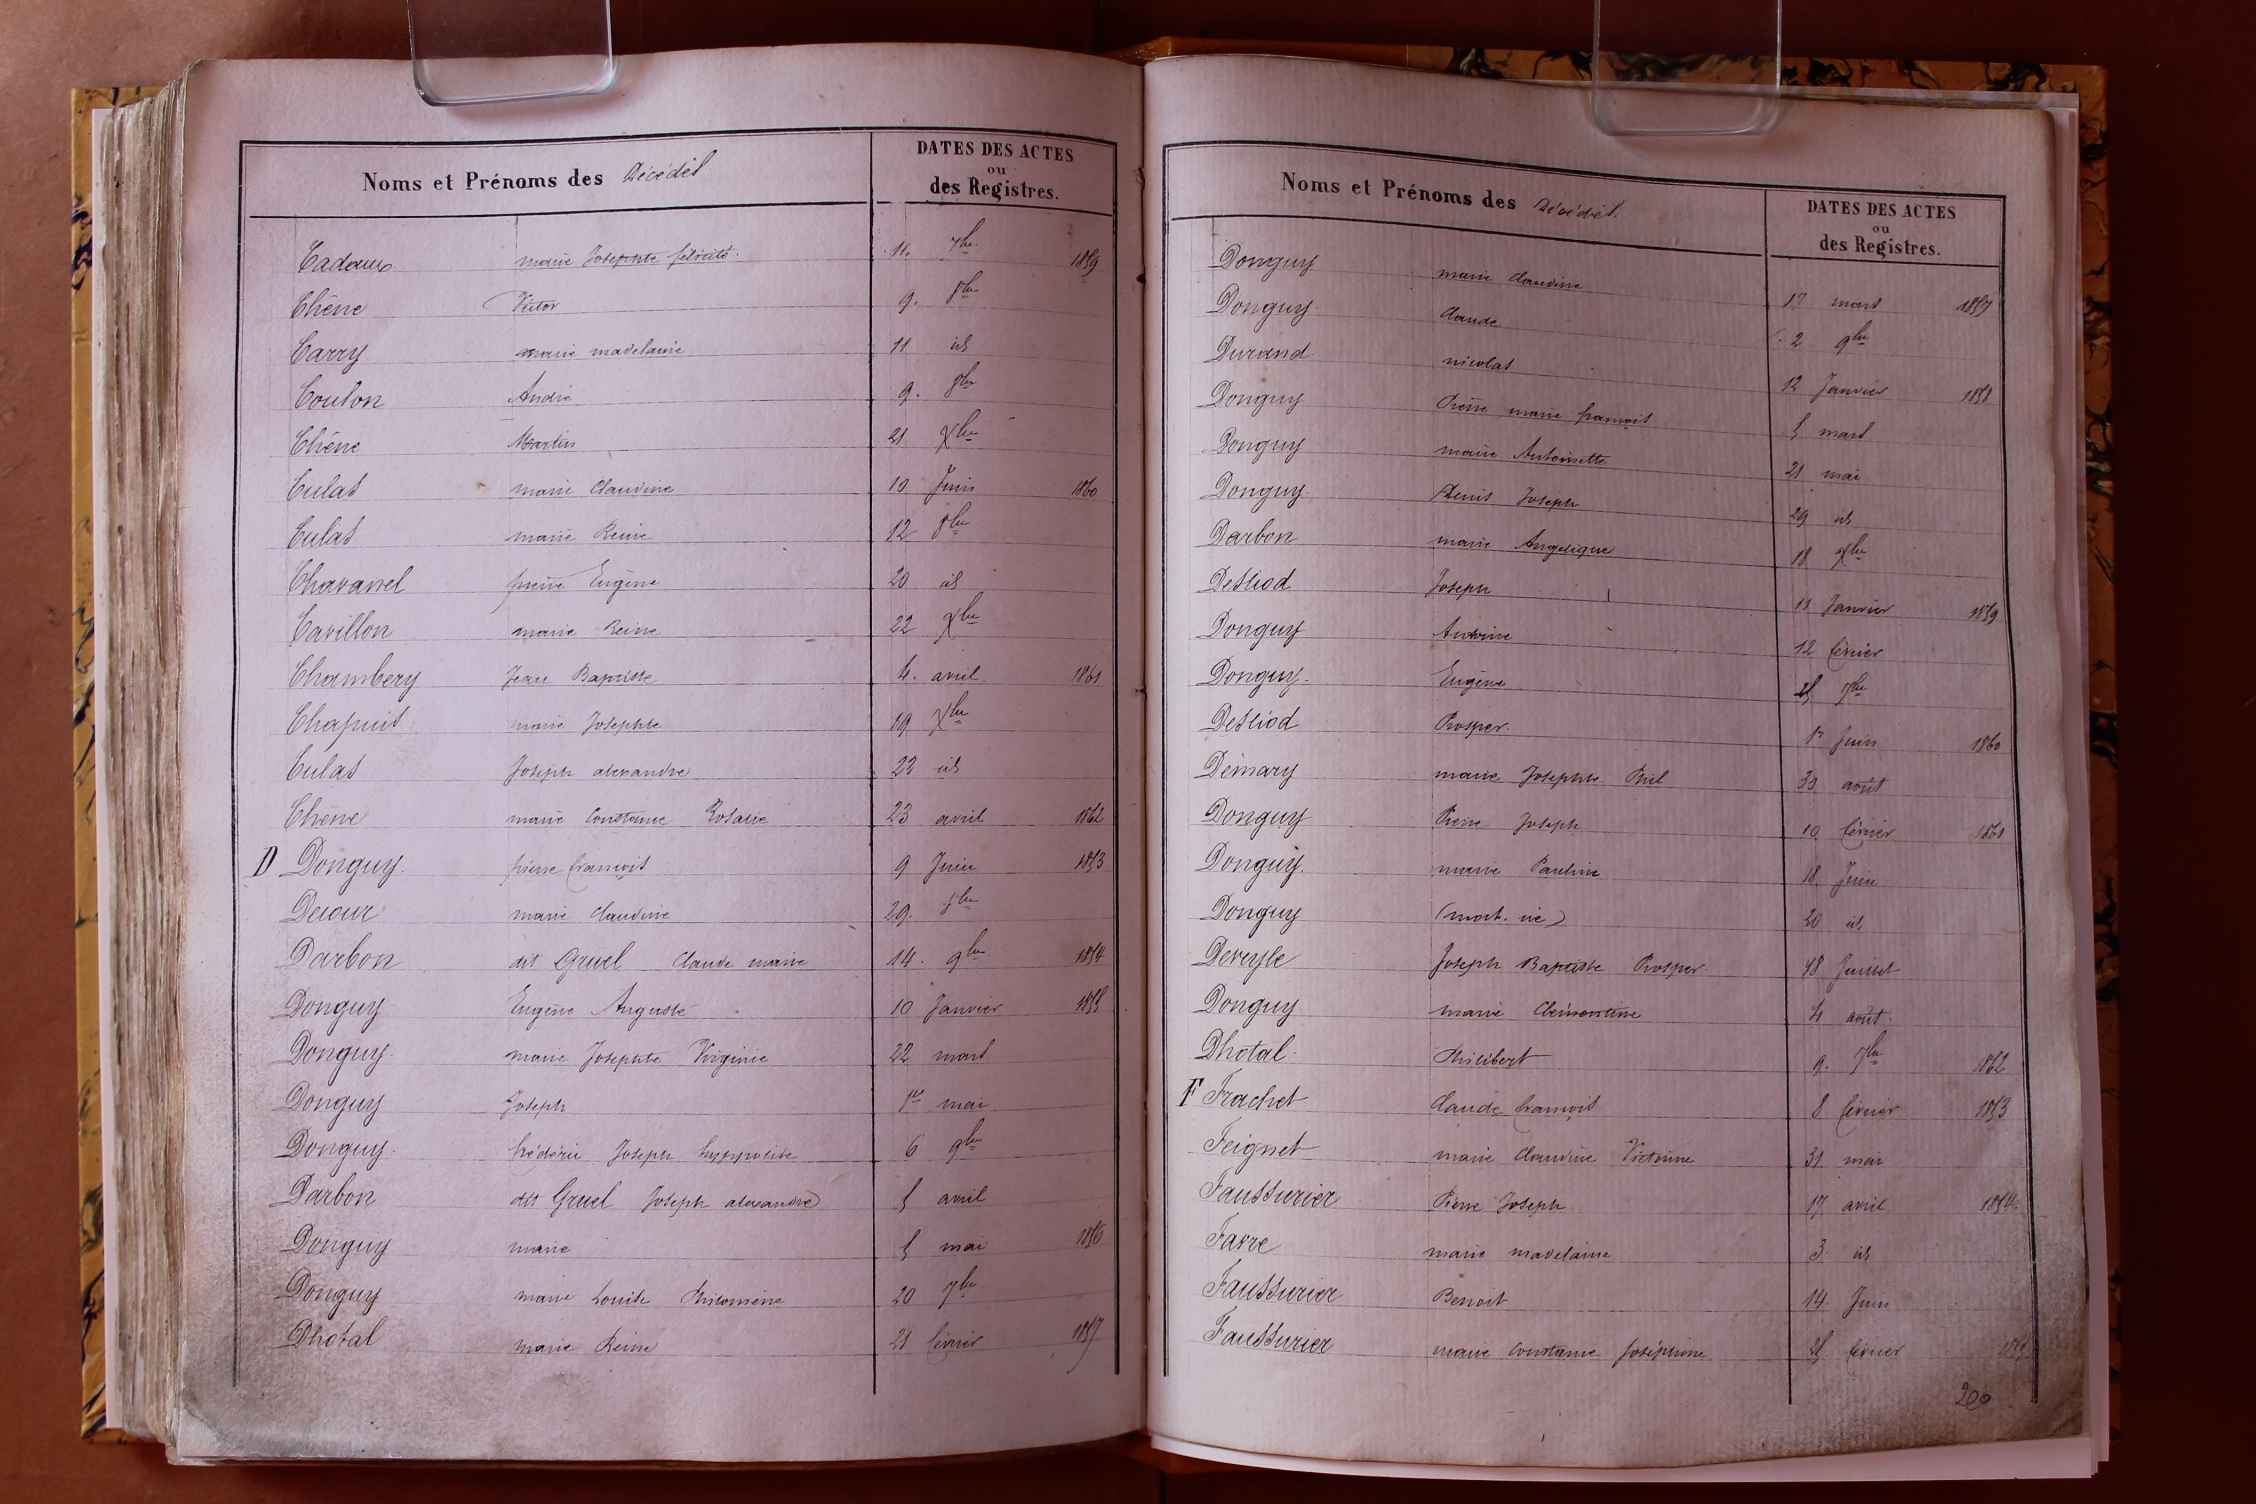 Noms et Prénoms des Décédés
DATES DES ACTES
ou
des Registres.
Cadoux marie Josephte félicité. 14. 7bre 1859
Chêne Victor 9. 8bre
Carry marie madelaine 11 id
Coulon André 9. 8bre
Chêne Martin 21 Xbre
Culas marie Claudine 10 Juin 1860
Culas marie Reine 12 8bre
Chavanel pierre Eugène 20 id
Cavillon marie Reine 22 Xbre
Chambery Jean Baptiste 4. avril 1861
Chapuis marie Josephte 19 Xbre
Culas Joseph alexandre 23 id
Chêne marie Constance Rosalie 23 avril 1862
D Donguy. pierre françois 9 Juin 1853
Decour marie Claudine 29. 8bre
Darbon dit Gruel Claude marie 14. 9bre 1854
Donguy Eugène Auguste 10 Janvier 1855
Donguy. marie Josephte Virginie 22 mars
Donguy Joseph 1er mai
Donguy. frédéric Joseph hyppolite 6 9bre
Darbon dit Gruel Joseph alexandre 5 avril
Donguy marie 5 mai 1856
Donguy marie Louise Philomène 20 7bre
Dhotal marie Reine 21 février 1857
Noms et Prénoms des Décédés.
DATES DES ACTES
ou
des Registres.
Donguy marie Claudine 17 mars 1857
Donguy Claude 2 9bre
Durand nicolas 12 Janvier 1858
Donguy Pierre marie françois 5 mars
Donguy marie Antoinette 21 mai
Donguy. Denis Joseph 29 id
Darbon marie Angelique 18 Xbre
Desliod Joseph 11 Janvier 1859
Donguy Antoine 12 février
Donguy. Eugène 25 7bre
Desliod Prosper. 1er Juin 1860
Démary marie Josephte 30 août
Donguy Pierre Joseph 10 février 1861
Donguy. marie Pauline 18 Juin
Donguy (mort-né) 20 id
Dereyle Joseph Baptiste Prosper 18 Juillet
Donguy marie Clémentine 4 août.
Dhotal. Philibert 9. 7bre 1862
F Frachet Claude françois 8 février 1853
Feignet marie Claudine Victorine 31 mai
Faussurier Pierre Joseph 17 avril 1854
Favre marie madelaine 3. id
Faussurier Benoit 14. Juin
Faussurier marie Constance Joséphine 25 février
200